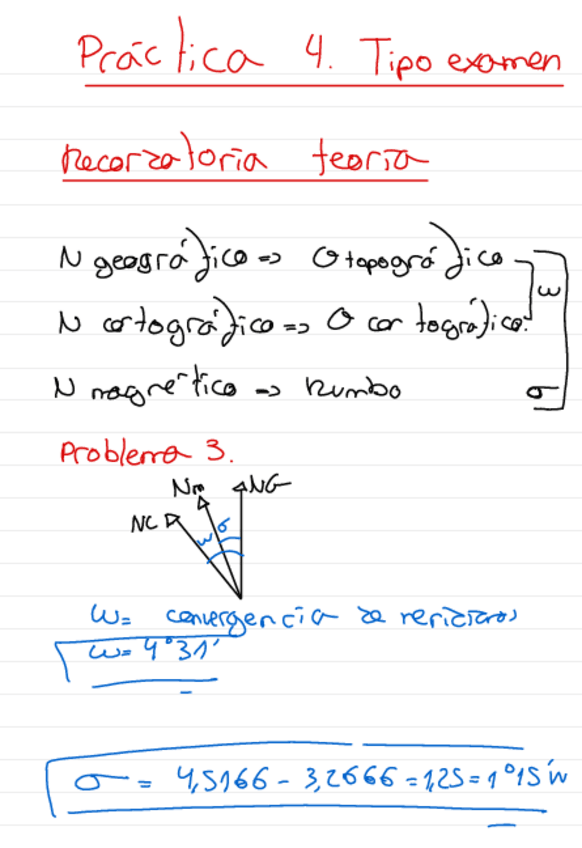 Práctica 4. Tipo examen
Recordatorio teoría
N geográfico => θ topográfico
N cartográfico => θ cartográfico.
ω
N magnético => Rumbo
σ
Problema 3.
Nm NG
NC
ω σ
ω = convergencia de meridianos
ω = 4°31'
σ = 4,5166 - 3,2666 = 1,25 = 1°15' W